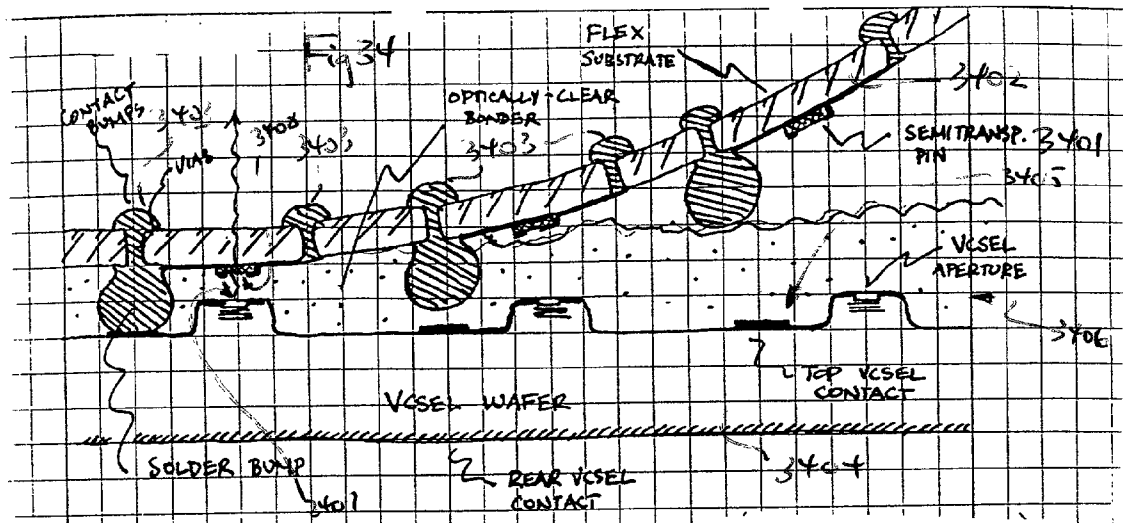 Fig 34
FLEX
SUBSTRATE
3402
CONTACT
BUMPS
VIAS
3408
3403
OPTICALLY-CLEAR
BONDER
3403
SEMITRANSP.
PIN
3401
3405
VCSEL
APERTURE
3406
TOP VCSEL
CONTACT
VCSEL WAFER
SOLDER BUMP
REAR VCSEL
CONTACT
3404
3407